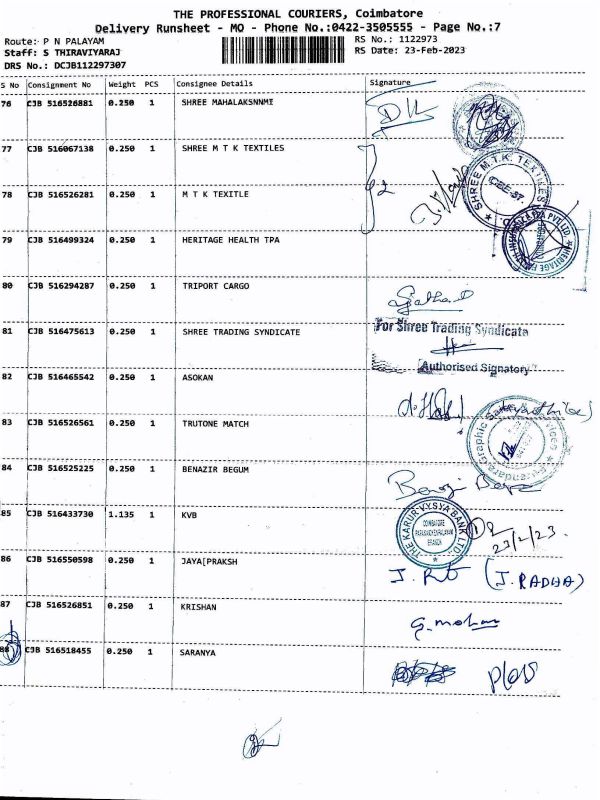 THE PROFESSIONAL COURIERS, Coimbatore
Delivery Runsheet - MO - Phone No.:0422-3505555 - Page No.:7
Route: P N PALAYAM RS No.: 1122973
Staff: S THIRAVIYARAJ RS Date: 23-Feb-2023
DRS No.: DCJB112297307
S No Consignment No Weight PCS Consignee Details Signature
76 CJB 516526881 0.250 1 SHREE MAHALAKSNNMI
77 CJB 516067138 0.250 1 SHREE M T K TEXTILES
SHREE M.T.K. TEXTILES
78 CJB 516526281 0.250 1 M T K TEXITLE
79 CJB 516499324 0.250 1 HERITAGE HEALTH TPA
80 CJB 516294287 0.250 1 TRIPORT CARGO
81 CJB 516475613 0.250 1 SHREE TRADING SYNDICATE
For Shree Trading Syndicate
Authorised Signatory
82 CJB 516465542 0.250 1 ASOKAN
83 CJB 516526561 0.250 1 TRUTONE MATCH
84 CJB 516525225 0.250 1 BENAZIR BEGUM
85 CJB 516433730 1.135 1 KVB
THE KARUR VYSYA BANK LTD.
COIMBATORE
BRANCH
23/2/23.
86 CJB 516550598 0.250 1 JAYA[PRAKSH
(J.RADHA)
87 CJB 516526851 0.250 1 KRISHAN
G.mohan
88 CJB 516518455 0.250 1 SARANYA